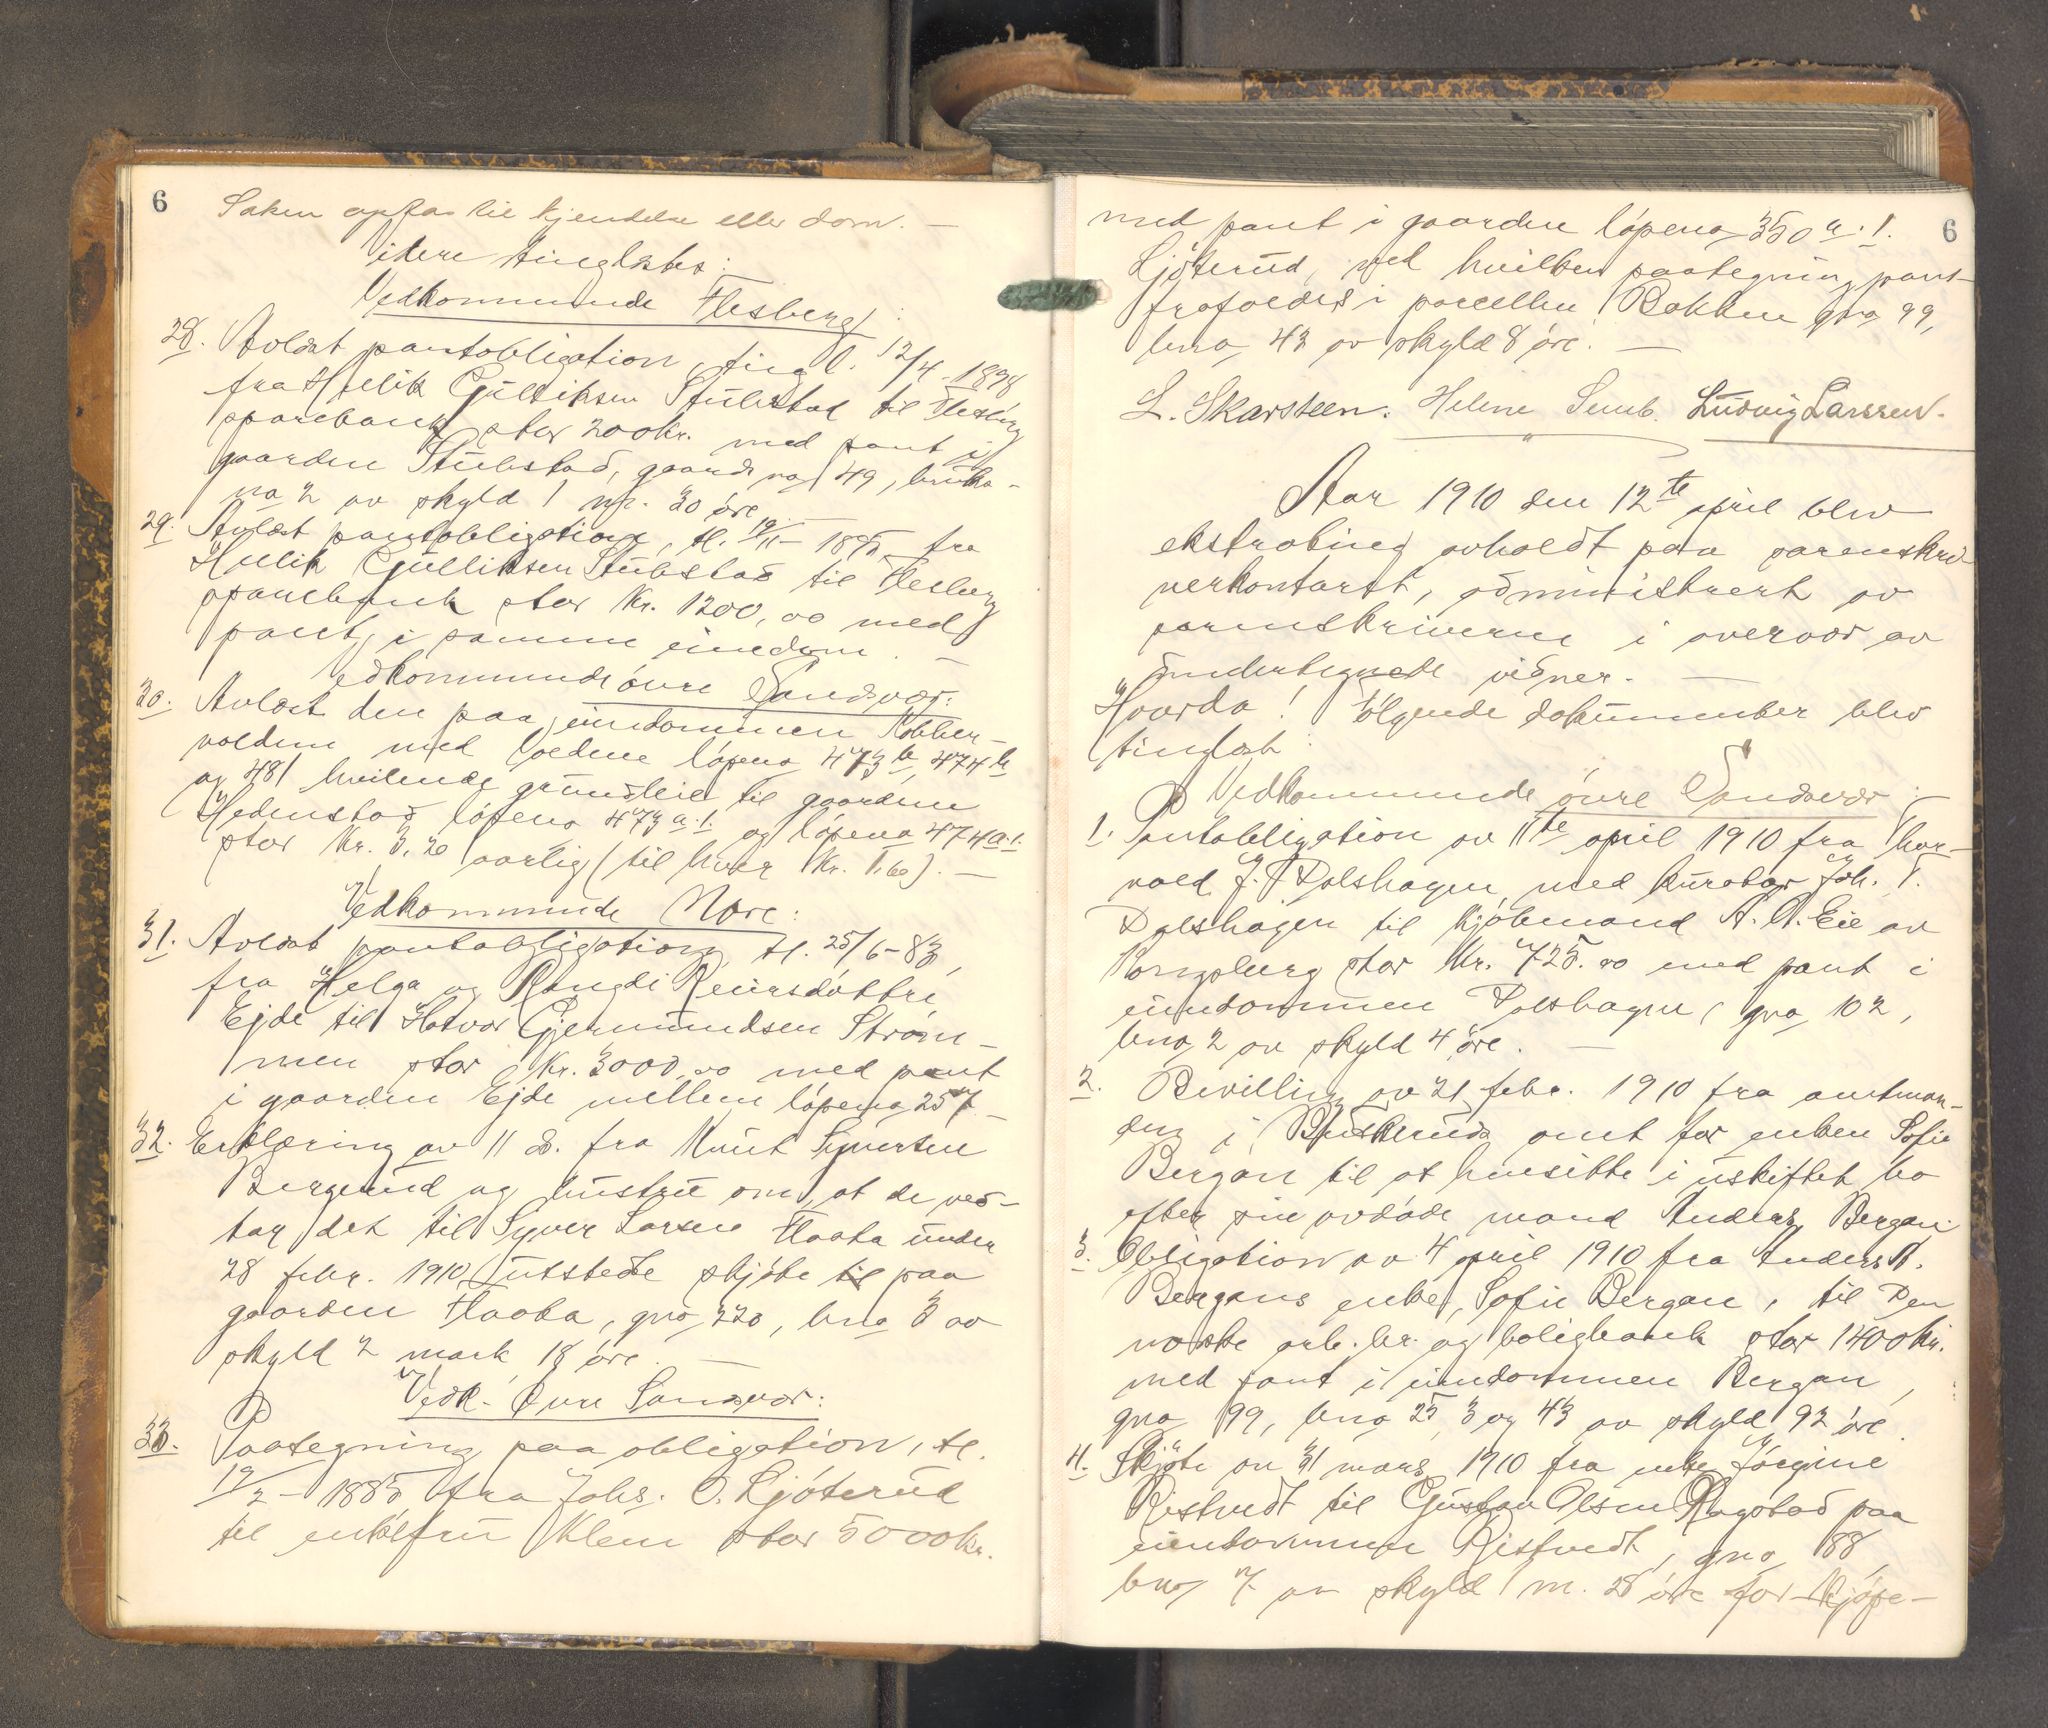 6
Saken optas til kjendelse eller dom. —
Videre tinglæstes:
Vedkommende Flesberg:
28. Avlæst pantobligation, tingl. 12/4-1898
fra Hellik Gulliksen Stubstad til Flesberg
sparebank stor 200 kr. med pant i
gaarden Stubstad, gaards no 49, bruks-
no 2 av skyld 1 mr. 30 øre —
29. Avlæst pantobligation, tl. fra
Hellik Gulliksen Stubstad til Flesberg
sparebank stor Kr. 1200,00 med
pant i samme eiendom. —
Vedkommende øvre Sandsvær:
30. Avlæst den paa eiendommen Kobber-
volden med løpeno 473 b, 474 b
og 481 hvilende grundleie til gaardene
Hedenstad løpeno 473 a.1. og løpeno 474 a.1.
stor Kr. 3,20 aarlig (til hver Kr. 1.60). —
Vedkommende Nore:
31. Avlæst pantobligation, tl. 25/6-83,
fra Helga og Rangdi Reiersdøttre
Ejde til Hotvor Gjermundsen Strøm-
men stor Kr. 3000,00 med pant
i gaarden Ejde mellem løpeno 257 —
32. Erklæring av 11 ds. fra Knut Syversen
Bergerud og hustru om, at de ved-
tar det til Syver Larsen Haaba under
28 febr. 1910 utstedte skjøte til paa
gaarden Haaba, gno 220, bno 3 av
skyld 2 mark 18 øre. —
Vedk. Øvre Sandsvær:
33. Paategning paa obligation, tl.
19/2-1885 fra Johs. O. Ljøterud
til enkefru Klem stor 5000 kr.
6
med pant i gaarden løpeno 350 a.1.
Ljøterud, ved hvilken paategning pant-
frafaldes i parcellen Bakken gno 99,
bno 43 av skyld 8 øre. —
L. Skarsteen. Helene Semb. Ludvig Larssen.
Aar 1910 den 12te april blev
ekstrating avholdt paa sorenskri
verkontoret, administrert av
sorenskriveren i overvær av
undertegnede vidner. —
Hvorda! Følgende dokumenter blev
tinglæst:
Vedkommende øvre Sandsvær:
1. Pantobligation av 11te april 1910 fra Thor-
vald J. Polshagen med kurator Joh. T.
Polshagen til kjøbmand A. A. Eie av
Kongsberg stor Kr. 725.00 med pant i
eiendommen Polshagen, gno 102,
bno 2 av skyld 4 øre. —
2. Bevilling av 21 febr. 1910 fra amtman-
den i Buskeruds amt for enken Sofie
Bergan til at hensitte i uskiftet bo
efter sin avdøde mand Anders Bergan
3. Obligation av 4 april 1910 fra Anders A.
Bergans enke, Sofie Bergan, til Den
norske arb. br. og boligbank stor 1400 kr.
med pant i eiendommen Bergan,
gno 99, bno 25, 3 og 43 av skyld 92 øre.
4. Skjøte av 31 mars 1910 fra enke Jørgine
Ristvedt til Gustav Olsen Ragstad paa
eiendommen Ristvedt, gno 88,
bno 7 av skyld 1 m. 28 øre for kjøpe-